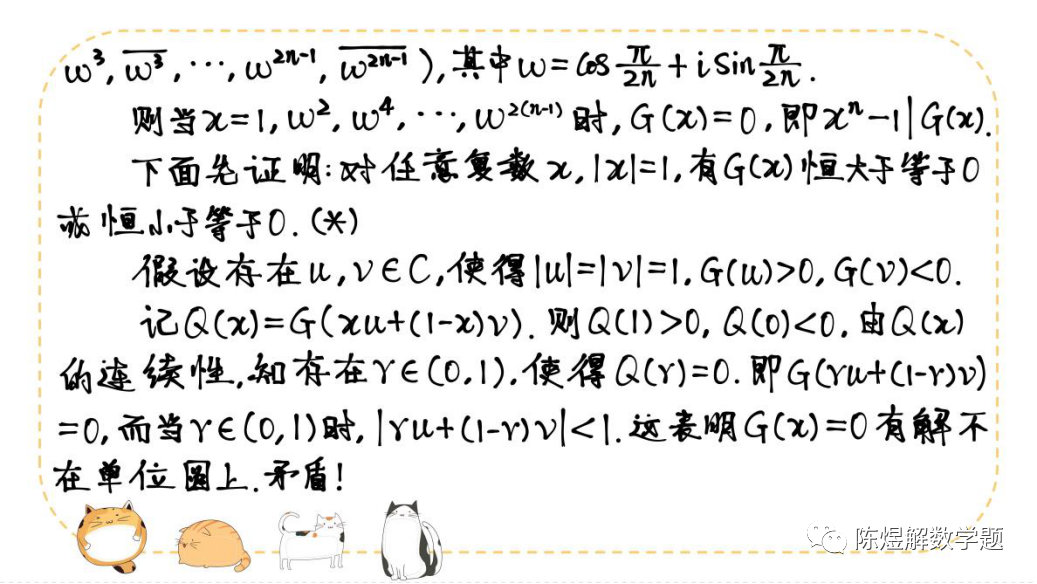 ω³, \overline{ω³}, ⋯, ω²ⁿ⁻¹, \overline{ω²ⁿ⁻¹}),其中ω=cos π/2n + i sin π/2n.
则当x=1, ω², ω⁴, ⋯, ω²⁽ⁿ⁻¹⁾时, G(x)=0, 即xⁿ-1|G(x).
下面先证明:对任意复数x, |x|=1, 有G(x)恒大于等于0
或恒小于等于0. (*)
假设存在u, v∈C, 使得|u|=|v|=1, G(u)>0, G(v)<0.
记Q(x)=G(xu+(1-x)v). 则Q(1)>0, Q(0)<0, 由Q(x)
的连续性, 知存在r∈(0,1), 使得Q(r)=0. 即G(ru+(1-r)v)
=0, 而当r∈(0,1)时, |ru+(1-r)v|<1. 这表明G(x)=0有解不
在单位圆上. 矛盾!
陈煜解数学题